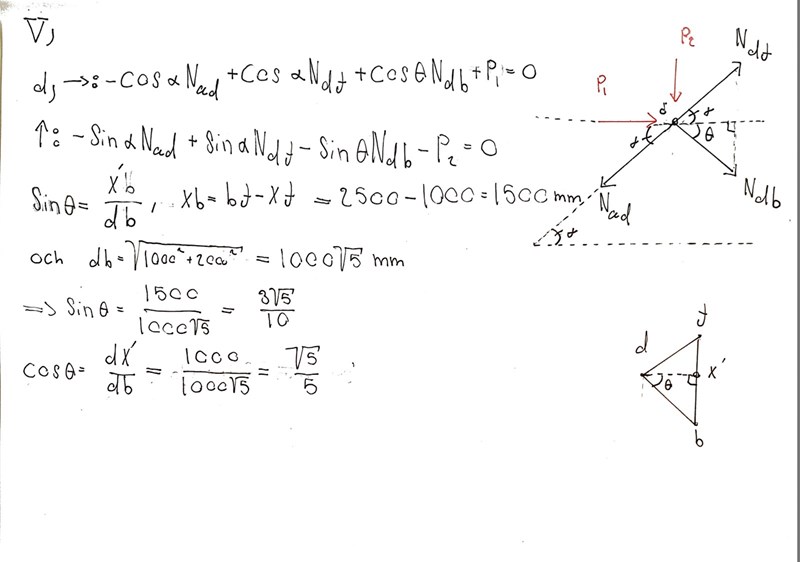 V)
d) →: -cos α N_ad + cos α N_df + cos θ N_db + P_1 = 0
↑: - sin α N_ad + sin α N_df - sin θ N_db - P_2 = 0
sin θ = x'b / db , xb = bf - xf = 2500 - 1000 = 1500 mm
och db = √(1000² + 200²) = 1000√5 mm
=> sin θ = 1500 / 1000√5 = 3√5 / 10
cos θ = dx' / db = 1000 / 1000√5 = √5 / 5
P_2
N_df
P_1
δ
α
θ
α
N_ad
N_db
α
f
d
θ
x'
b